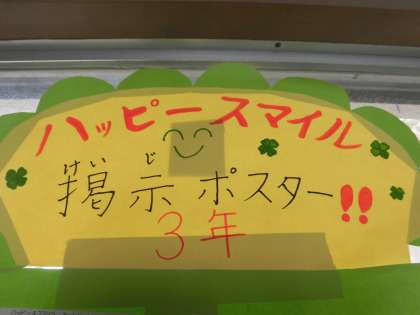 ハッピースマイル
けいじ
掲示ポスター!!
3年